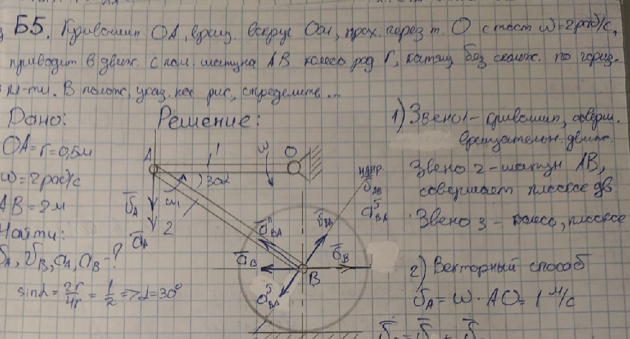 Б5. Кривошип OA, вращ вокруг Оси, прох. через т. O с пост ω=2рад/с,
приводит в движ. с пом. шатуна AB колесо рад r, катящ без скольж. по гориз.
пл-ти. В полож, указ. на рис, определить...
Дано:
OA=r=0,5м
ω=2рад/с
AB=2м
Найти:
υA, υB, aA, aB -?
Решение:
sinα = 2r/4r = 1/2 => α=30°
A
1
ω
O
30°
υ̅A
ω1
2
a̅A
напр.
υ̅BA
a̅ⁿBA
υ̅BA
a̅B
B
υ̅B
1) Звено 1 - кривошип, соверш.
вращательн. движ.
Звено 2 - шатун AB,
совершает плоское дв.
Звено 3 - колесо, плоское
2) Векторный способ
υ̅A = ω · AO = 1 м/с